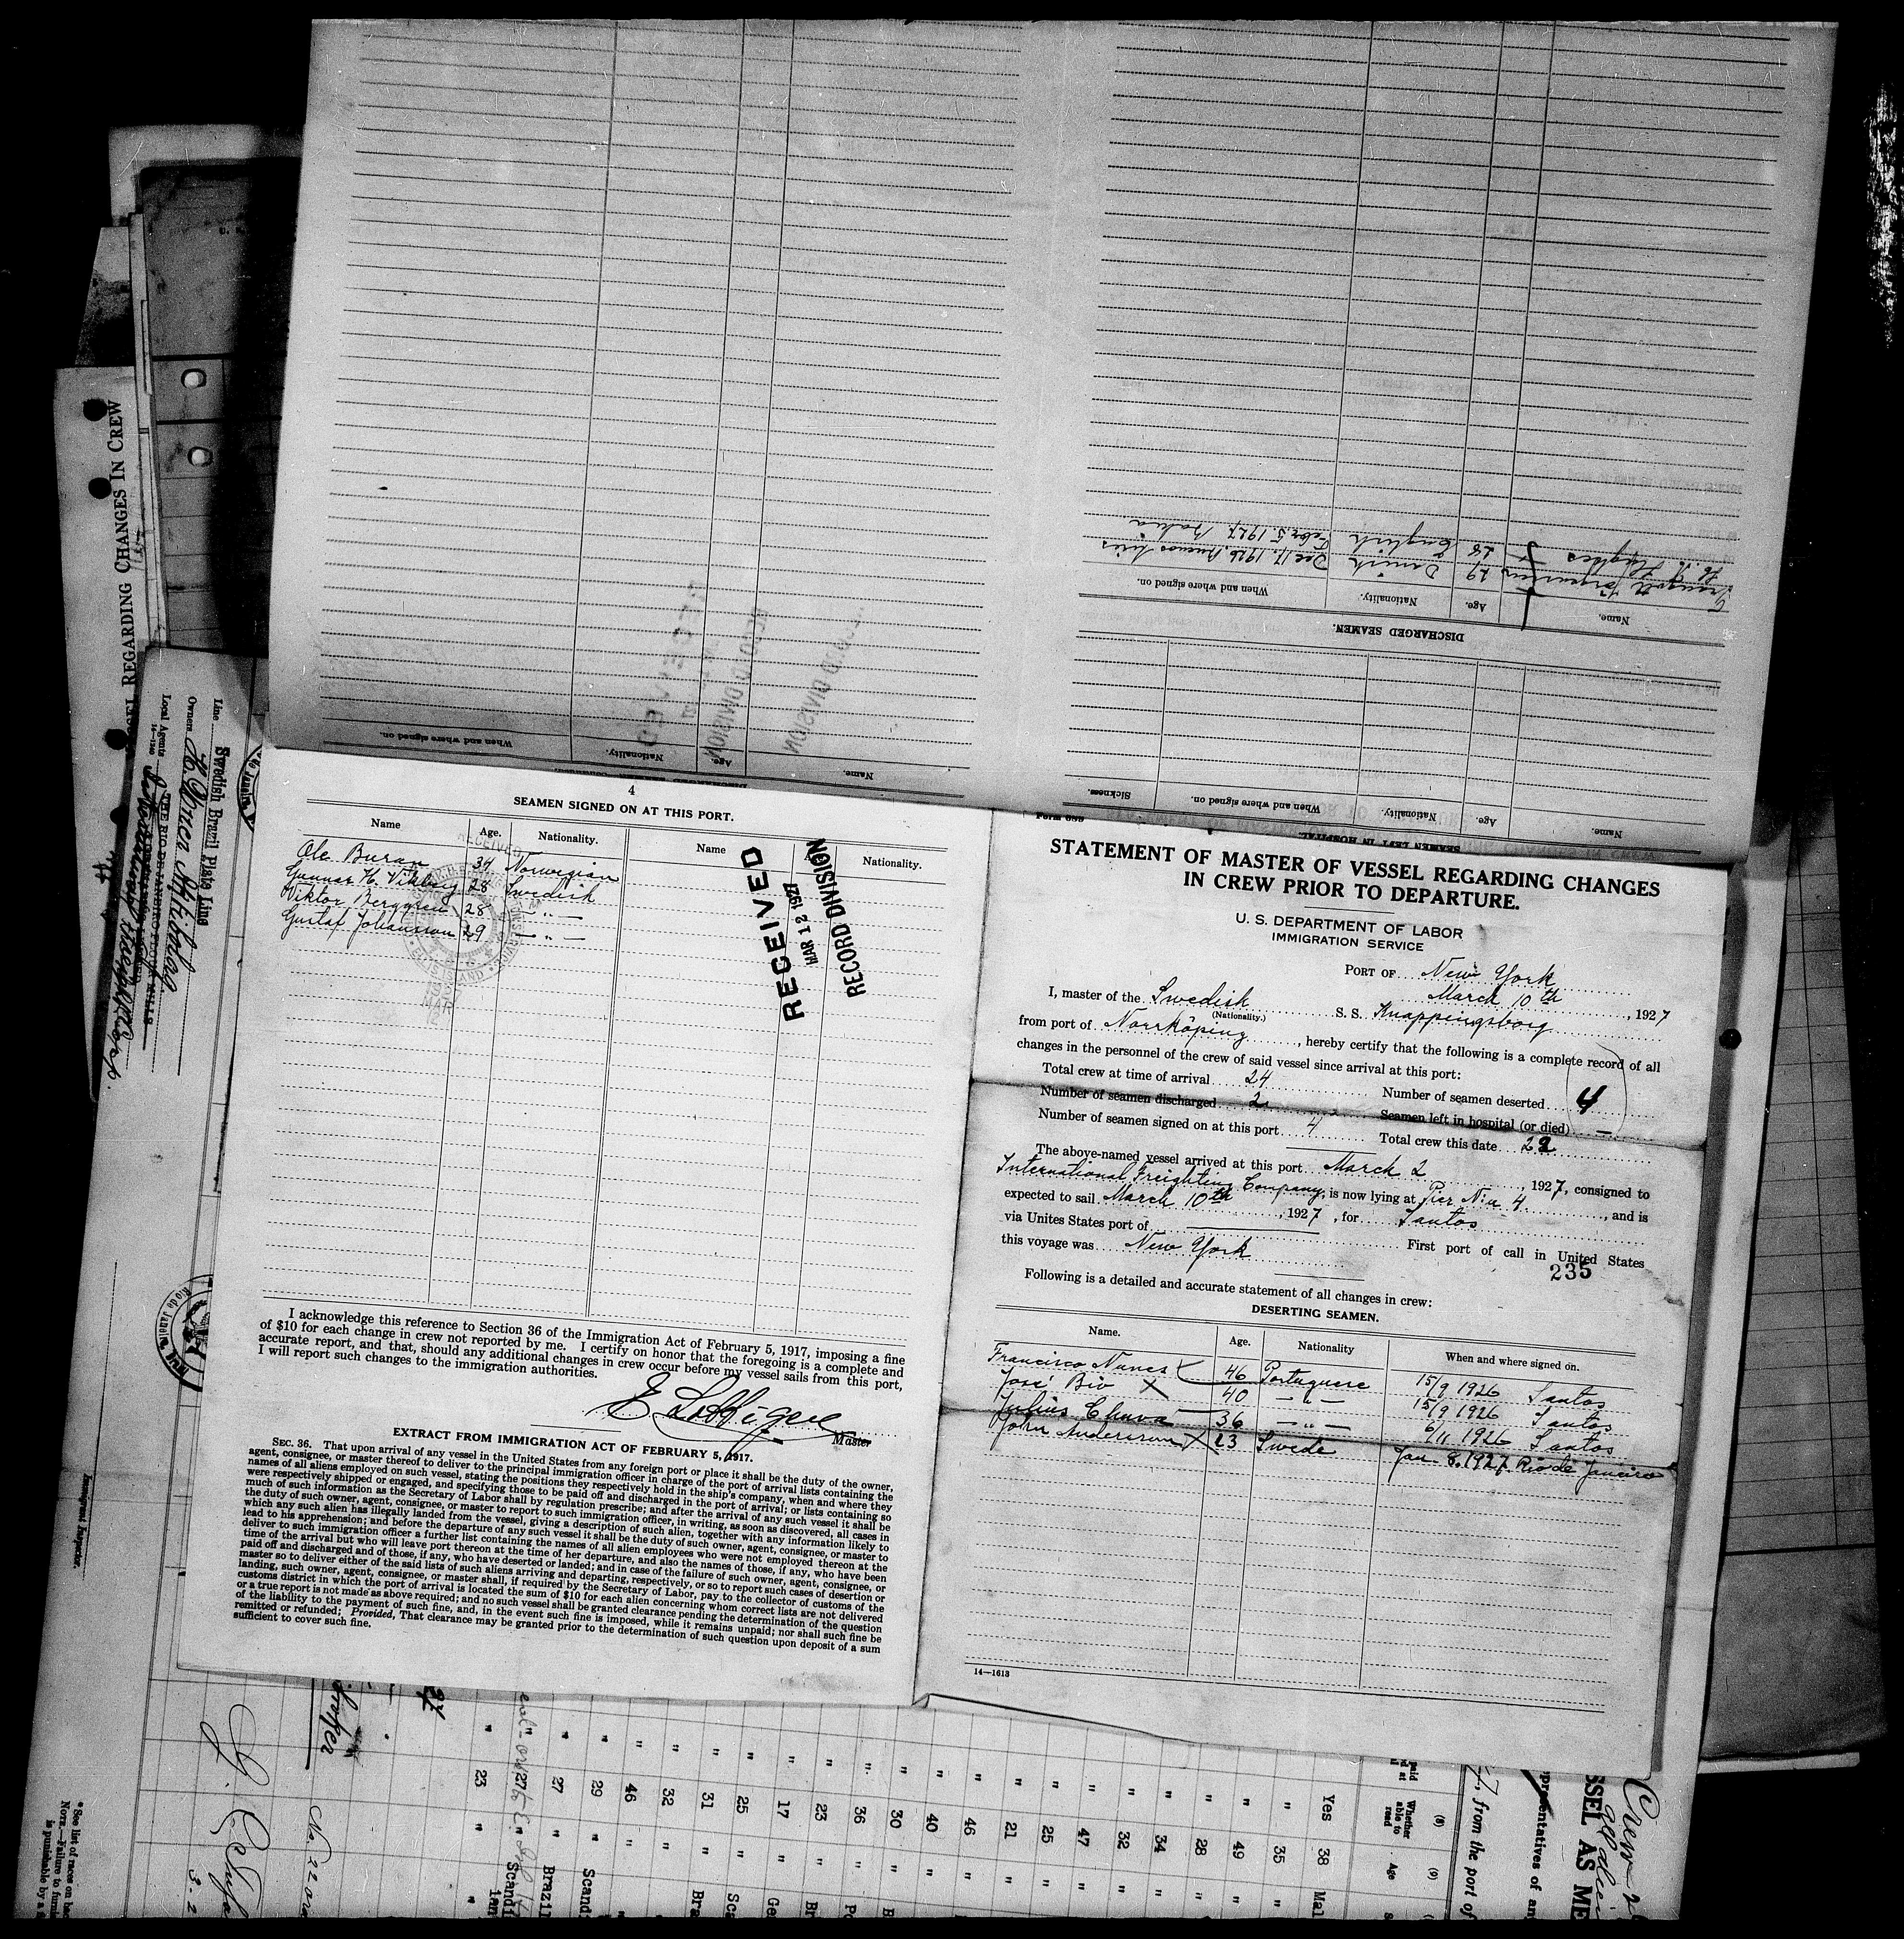 4
SEAMEN SIGNED ON AT THIS PORT.
Name Age. Nationality. Name Nationality.
Ole Buran 34 Norwegian
Gunnar H. Vikberg 28 Swedish
Viktor Berggren 28 — " —
Gustaf Johansson 29 — " —
RECEIVED
MAR 12 1927
RECORD DIVISION
I acknowledge this reference to Section 36 of the Immigration Act of February 5, 1917, imposing a fine
of $10 for each change in crew not reported by me. I certify on honor that the foregoing is a complete and
accurate report, and that, should any additional changes in crew occur before my vessel sails from this port,
I will report such changes to the immigration authorities.
Master
EXTRACT FROM IMMIGRATION ACT OF FEBRUARY 5, 1917.
SEC. 36. That upon arrival of any vessel in the United States from any foreign port or place it shall be the duty of the owner,
agent, consignee, or master thereof to deliver to the principal immigration officer in charge of the port of arrival lists containing the
names of all aliens employed on such vessel, stating the positions they respectively hold in the ship's company, when and where they
were respectively shipped or engaged, and specifying those to be paid off and discharged in the port of arrival; or lists containing so
much of such information as the Secretary of Labor shall by regulation prescribe; and after the arrival of any such vessel it shall be
the duty of such owner, agent, consignee, or master to report to such immigration officer, in writing, as soon as discovered, all cases in
which any such alien has illegally landed from the vessel, giving a description of such alien, together with any information likely to
lead to his apprehension; and before the departure of any such vessel it shall be the duty of such owner, agent, consignee, or master to
deliver to such immigration officer a further list containing the names of all alien employees who were not employed thereon at the
time of the arrival but who will leave port thereon at the time of her departure, and also the names of those, if any, who have been
paid off and discharged and of those, if any, who have deserted or landed; and in case of the failure of such owner, agent, consignee, or
master so to deliver either of the said lists of such aliens arriving and departing, respectively, or so to report such cases of desertion or
landing, such owner, agent, consignee, or master shall, if required by the Secretary of Labor, pay to the collector of customs of the
customs district in which the port of arrival is located the sum of $10 for each alien concerning whom correct lists are not delivered
or a true report is not made as above required; and no such vessel shall be granted clearance pending the determination of the question
of the liability to the payment of such fine, and, in the event such fine is imposed, while it remains unpaid; nor shall such fine be
remitted or refunded; Provided, That clearance may be granted prior to the determination of such question upon deposit of a sum
sufficient to cover such fine.
Form 689
STATEMENT OF MASTER OF VESSEL REGARDING CHANGES
IN CREW PRIOR TO DEPARTURE.
U. S. DEPARTMENT OF LABOR
IMMIGRATION SERVICE
PORT OF New York
March 10th, 1927
I, master of the Swedish S. S. Knappingsborg
(Nationality.)
from port of Norrköping, hereby certify that the following is a complete record of all
changes in the personnel of the crew of said vessel since arrival at this port:
Total crew at time of arrival 24 Number of seamen deserted 4
Number of seamen discharged 2 Seamen left in hospital (or died) —
Number of seamen signed on at this port 4 Total crew this date 22
The above-named vessel arrived at this port March 2, 1927, consigned to
International Freighting Company, is now lying at Pier No 4, and is
expected to sail March 10th, 1927, for Santos
via Unites States port of
First port of call in United States
this voyage was New York
235
Following is a detailed and accurate statement of all changes in crew:
DESERTING SEAMEN.
Name. Age. Nationality When and where signed on.
Francisco Nunes 46 Portuguese 15/9 1926 Santos
José Bio X 40 — " — 15/9 1926 Santos
Julius Chuva 36 — " — 6/11 1926 Santos
John Anderson X 23 Swede Jan 8. 1927 Rio de Janeiro
14—1613
SEAMEN LEFT IN HOSPITAL
Name. Age. Nationality. When and where signed on. Sickness.
DISCHARGED SEAMEN.
Name. Age. Nationality. When and where signed on.
29 Danish Dec 17. 1926 Buenos Aires
Hughes 28 English Febr 5. 1927 Bahia
Name. Age. Nationality. When and where signed on.
REGARDING CHANGES IN CREW
Line Swedish Brazil Plate Line
Owners
Local Agents
THE RIO DE JANEIRO FLOUR MILLS
Immigrant Inspector.
* See list of races on bac
NOTE.—Failure to furnis
is punishable by a f
SSEL AS ME
presentatives of an
, from the port of
Crew
(8) (9)
Whether able to read Age
Yes 38 Mal
" 35 "
" 49 "
" 28 "
" 34 "
" 32 "
" 47 "
" 25 "
" 21 "
" 46 "
" 40 "
" 30 "
" 36 "
" 23 "
" 17 "
" 25 "
" 31 "
" 32 "
" 46 "
" 29 "
" 27 "
" 27 "
" 23 "